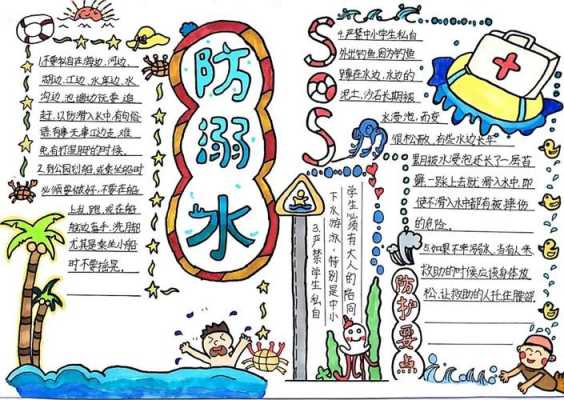 防溺水
1.不要私自在海边、河边、
湖边、江边、水库边、水
沟边、池塘边玩耍、追
赶,以防滑入水中,有句俗
语有事无事江边走,难
免有打湿脚的时候.
2.到公园划船,或乘坐船时
必须要做好.不要在船
上乱跑,或在船
舷边洗手、洗脚
尤其是乘坐小船
时不要摇晃.
3.严禁学生私自
下水游泳.特别是中小
学生必须有大人的陪同
SOS
4.严禁中小学生私自
外出钓鱼.因为钓鱼
蹲在水边,水边的
泥土,沙石长期被
水浸泡,而变
很松散,有些水边长年
累月被水浸泡还长了一层苔
藓,一踩上去就滑入水中,即
使不滑入水中都有被摔伤
的危险.
5.如果不幸溺水,当有人来
救助的时候应该身体放
松,让救助的人托住腰部.
防护要点